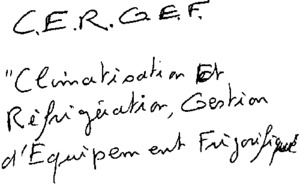 C.E.R.G.E.F.
"Climatisation Et
Réfrigération, Gestion
d'Équipement Frigorifique